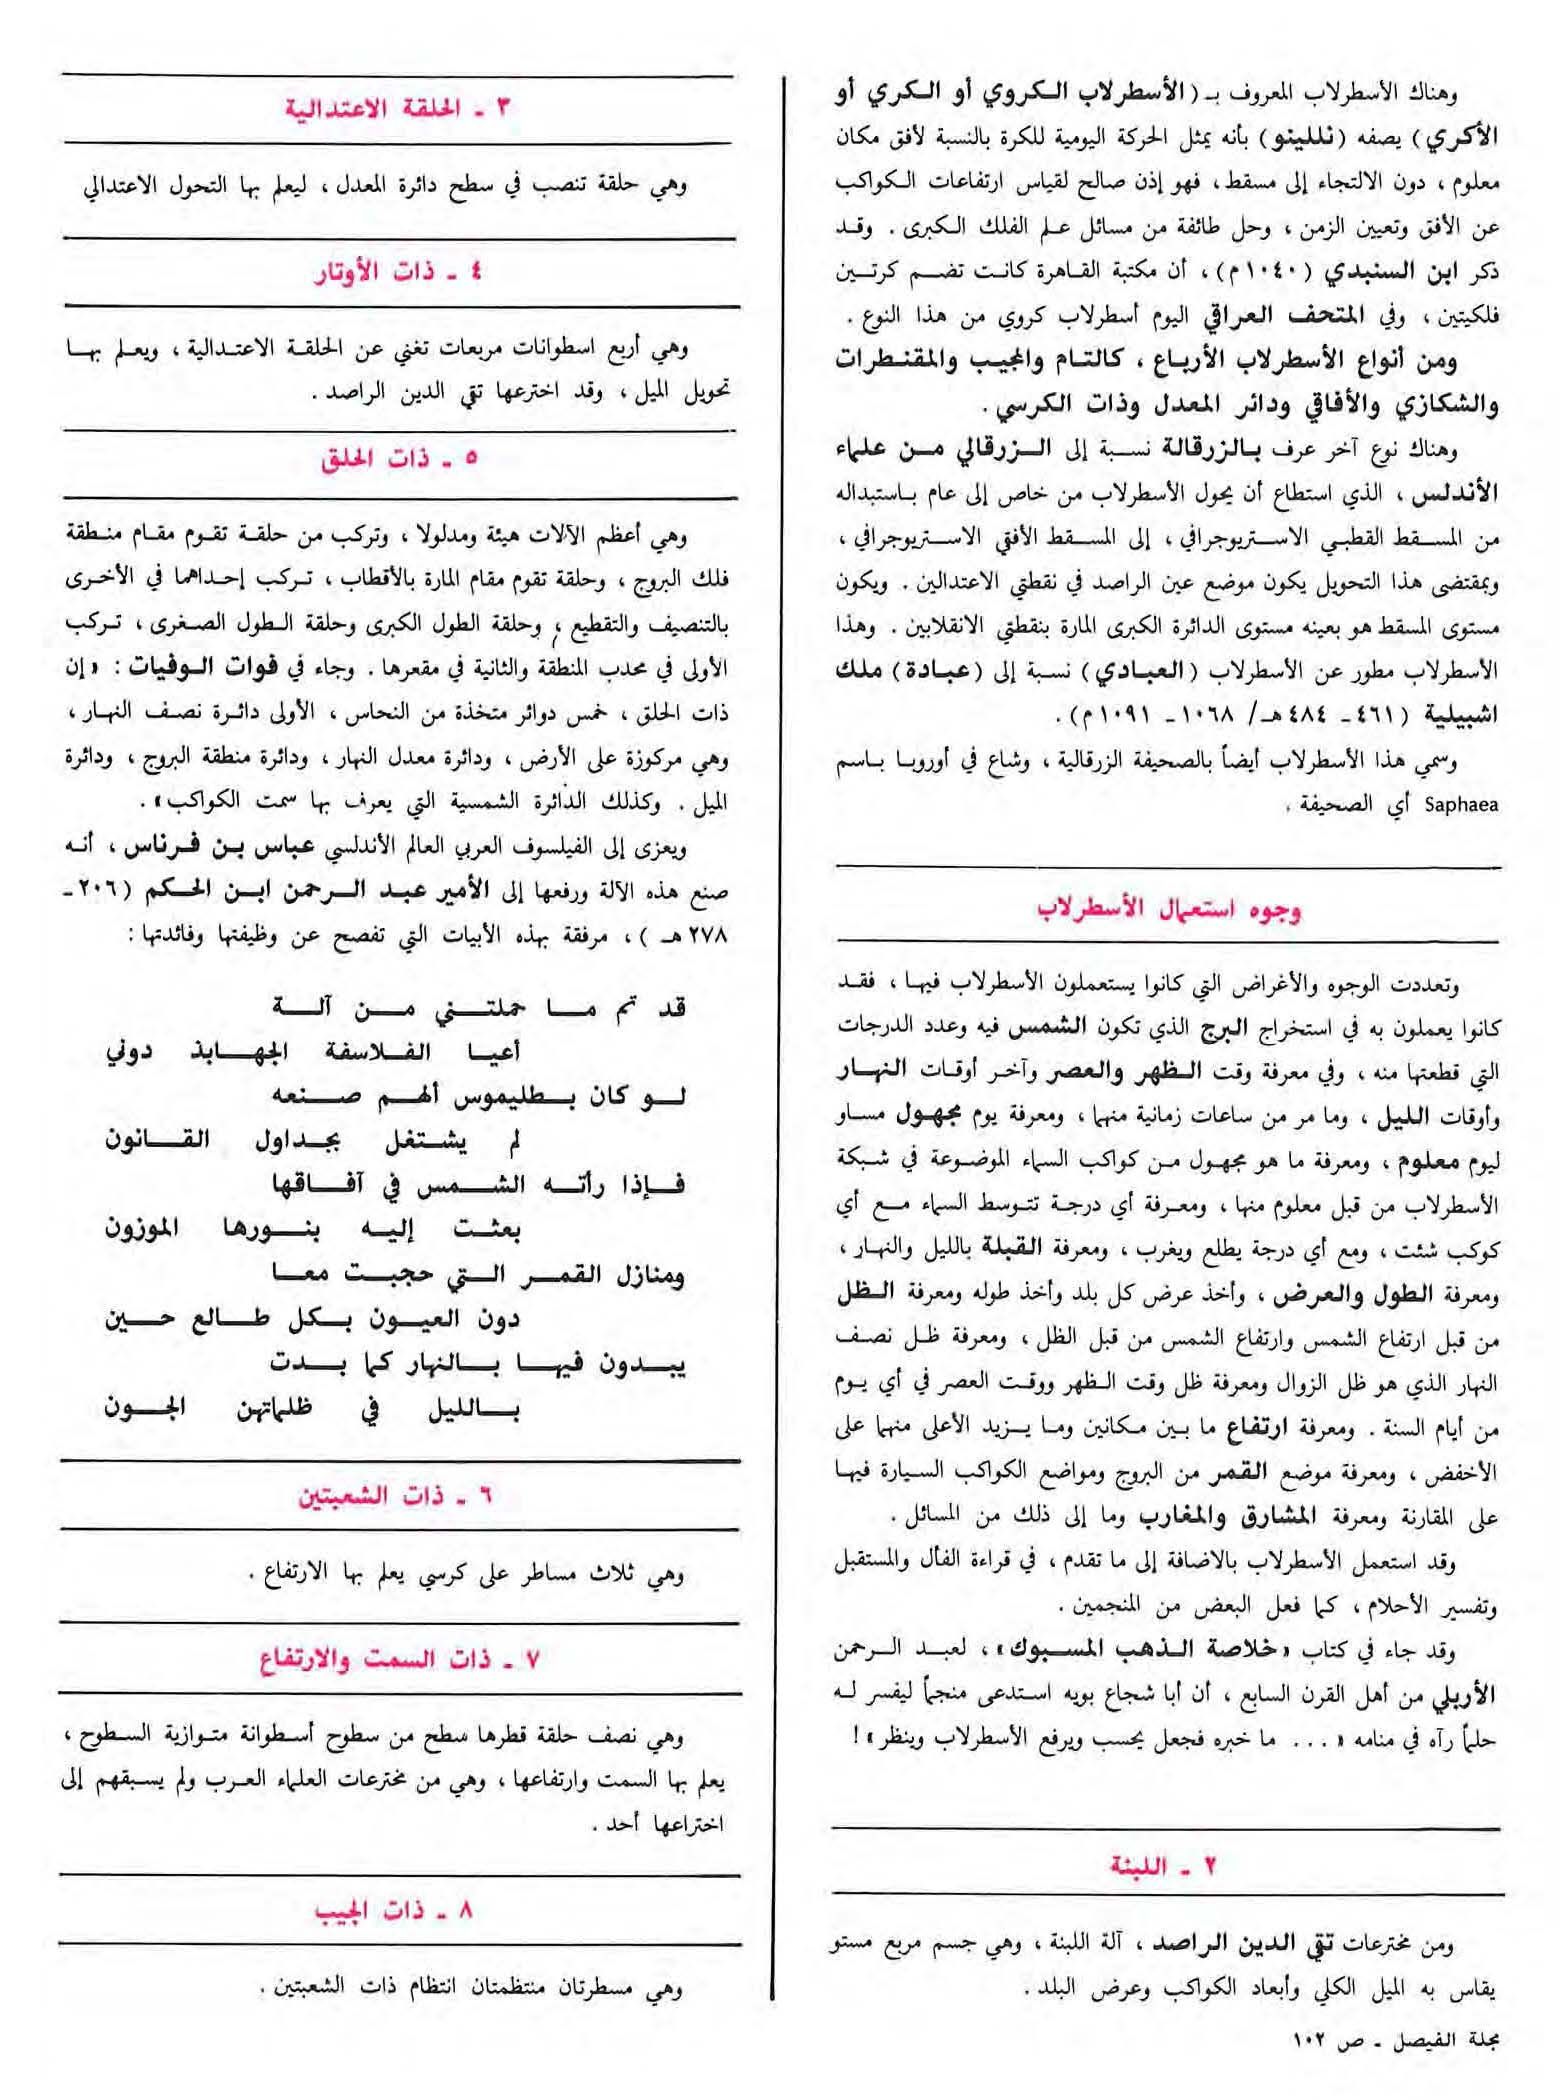 وهناك الأسطرلاب المعروف بـ (الأسطرلاب الكروي أو الكري أو
الأكري) يصفه (نللينو) بأنه يمثل الحركة اليومية للكرة بالنسبة لأفق مكان
معلوم، دون الالتجاء إلى مسقط، فهو إذن صالح لقياس ارتفاعات الكواكب
عن الأفق وتعيين الزمن، وحل طائفة من مسائل علم الفلك الكبرى. وقد
ذكر ابن السنبدي (١٠٤٠م)، أن مكتبة القاهرة كانت تضم كرتين
فلكيتين، وفي المتحف العراقي اليوم أسطرلاب كروي من هذا النوع.
ومن أنواع الأسطرلاب الأرباع، كالتام والمجيب والمقنطرات
والشكازي والأفاقي ودائر المعدل وذات الكرسي.
وهناك نوع آخر عرف بالزرقالة نسبة إلى الزرقالي من علماء
الأندلس، الذي استطاع أن يحول الأسطرلاب من خاص إلى عام باستبداله
من المسقط القطبي الاستريوجرافي، إلى المسقط الأفقي الاستريوجرافي،
وبمقتضى هذا التحويل يكون موضع عين الراصد في نقطتي الاعتدالين. ويكون
مستوى المسقط هو بعينه مستوى الدائرة الكبرى المارة بنقطتي الانقلابين. وهذا
الأسطرلاب مطور عن الأسطرلاب (العبادي) نسبة إلى (عبادة) ملك
اشبيلية (٤٦١ - ٤٨٤هـ/ ١٠٦٨ - ١٠٩١م).
وسمي هذا الأسطرلاب أيضاً بالصحيفة الزرقالية، وشاع في أوروبا باسم
Saphaea أي الصحيفة.
وجوه استعمال الأسطرلاب
وتعددت الوجوه والأغراض التي كانوا يستعملون الأسطرلاب فيها، فقد
كانوا يعملون به في استخراج البرج الذي تكون الشمس فيه وعدد الدرجات
التي قطعتها منه، وفي معرفة وقت الظهر والعصر وآخر أوقات النهار
وأوقات الليل، وما مر من ساعات زمانية منهما، ومعرفة يوم مجهول مساو
ليوم معلوم، ومعرفة ما هو مجهول من كواكب السماء الموضوعة في شبكة
الأسطرلاب من قبل معلوم منها، ومعرفة أي درجة تتوسط السماء مع أي
كوكب شئت، ومع أي درجة يطلع ويغرب، ومعرفة القبلة بالليل والنهار،
ومعرفة الطول والعرض، وأخذ عرض كل بلد وأخذ طوله ومعرفة الظل
من قبل ارتفاع الشمس وارتفاع الشمس من قبل الظل، ومعرفة ظل نصف
النهار الذي هو ظل الزوال ومعرفة ظل وقت الظهر ووقت العصر في أي يوم
من أيام السنة. ومعرفة ارتفاع ما بين مكانين وما يزيد الأعلى منهما على
الأخفض، ومعرفة موضع القمر من البروج ومواضع الكواكب السيارة فيها
على المقارنة ومعرفة المشارق والمغارب وما إلى ذلك من المسائل.
وقد استعمل الأسطرلاب بالاضافة إلى ما تقدم، في قراءة الفأل والمستقبل
وتفسير الأحلام، كما فعل البعض من المنجمين.
وقد جاء في كتاب «خلاصة الذهب المسبوك»، لعبد الرحمن
الأربلي من أهل القرن السابع، أن أبا شجاع بويه استدعى منجماً ليفسر له
حلماً رآه في منامه «... ما خبره فجعل يحسب ويرفع الأسطرلاب وينظر»!
٢ - اللبنة
ومن مخترعات تقي الدين الراصد، آلة اللبنة، وهي جسم مربع مستو
يقاس به الميل الكلي وأبعاد الكواكب وعرض البلد.
مجلة الفيصل - ص ١٠٢
٣ - الحلقة الاعتدالية
وهي حلقة تنصب في سطح دائرة المعدل، ليعلم بها التحول الاعتدالي
٤ - ذات الأوتار
وهي أربع اسطوانات مربعات تغني عن الحلقة الاعتدالية، ويعلم بها
تحويل الميل، وقد اخترعها تقي الدين الراصد.
٥ - ذات الحلق
وهي أعظم الآلات هيئة ومدلولا، وتركب من حلقة تقوم مقام منطقة
فلك البروج، وحلقة تقوم مقام المارة بالأقطاب، تركب إحداهما في الأخرى
بالتنصيف والتقطيع، وحلقة الطول الكبرى وحلقة الطول الصغرى، تركب
الأولى في محدب المنطقة والثانية في مقعرها. وجاء في فوات الوفيات: «إن
ذات الحلق، خمس دوائر متخذة من النحاس، الأولى دائرة نصف النهار،
وهي مركوزة على الأرض، ودائرة معدل النهار، ودائرة منطقة البروج، ودائرة
الميل. وكذلك الدائرة الشمسية التي يعرف بها سمت الكواكب».
ويعزى إلى الفيلسوف العربي العالم الأندلسي عباس بن فرناس، أنه
صنع هذه الآلة ورفعها إلى الأمير عبد الرحمن ابن الحكم (٢٠٦ -
٢٧٨ هـ)، مرفقة بهذه الأبيات التي تفصح عن وظيفتها وفائدتها:
قد تم ما حملتني من آلة
أعيا الفلاسفة الجهابذ دوني
لو كان بطليموس ألهم صنعه
لم يشتغل بجداول القانون
فإذا رأته الشمس في آفاقها
بعثت إليه بنورها الموزون
ومنازل القمر التي حجبت معا
دون العيون بكل طالع حين
يبدون فيها بالنهار كما بدت
بالليل في ظلماتهن الجون
٦ - ذات الشعبتين
وهي ثلاث مساطر على كرسي يعلم بها الارتفاع.
٧ - ذات السمت والارتفاع
وهي نصف حلقة قطرها سطح من سطوح أسطوانة متوازية السطوح،
يعلم بها السمت وارتفاعها، وهي من مخترعات العلماء العرب ولم يسبقهم إلى
اختراعها أحد.
٨ - ذات الجيب
وهي مسطرتان منتظمتان انتظام ذات الشعبتين.